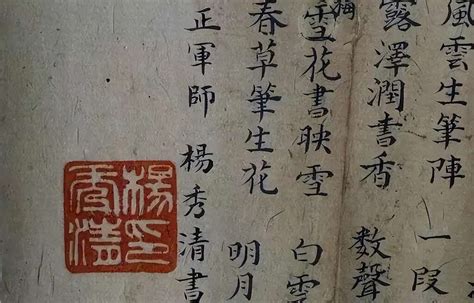 風雲生筆陣 一段
露澤潤書香 数聲
梅
雪花書映雪 白雲
春草筆生花 明月
正軍師 楊秀清書
楊秀清印